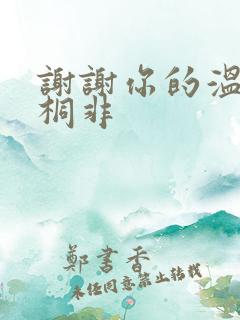 謝謝你的溫
桐非
鄭書香
未經同意禁止轉載